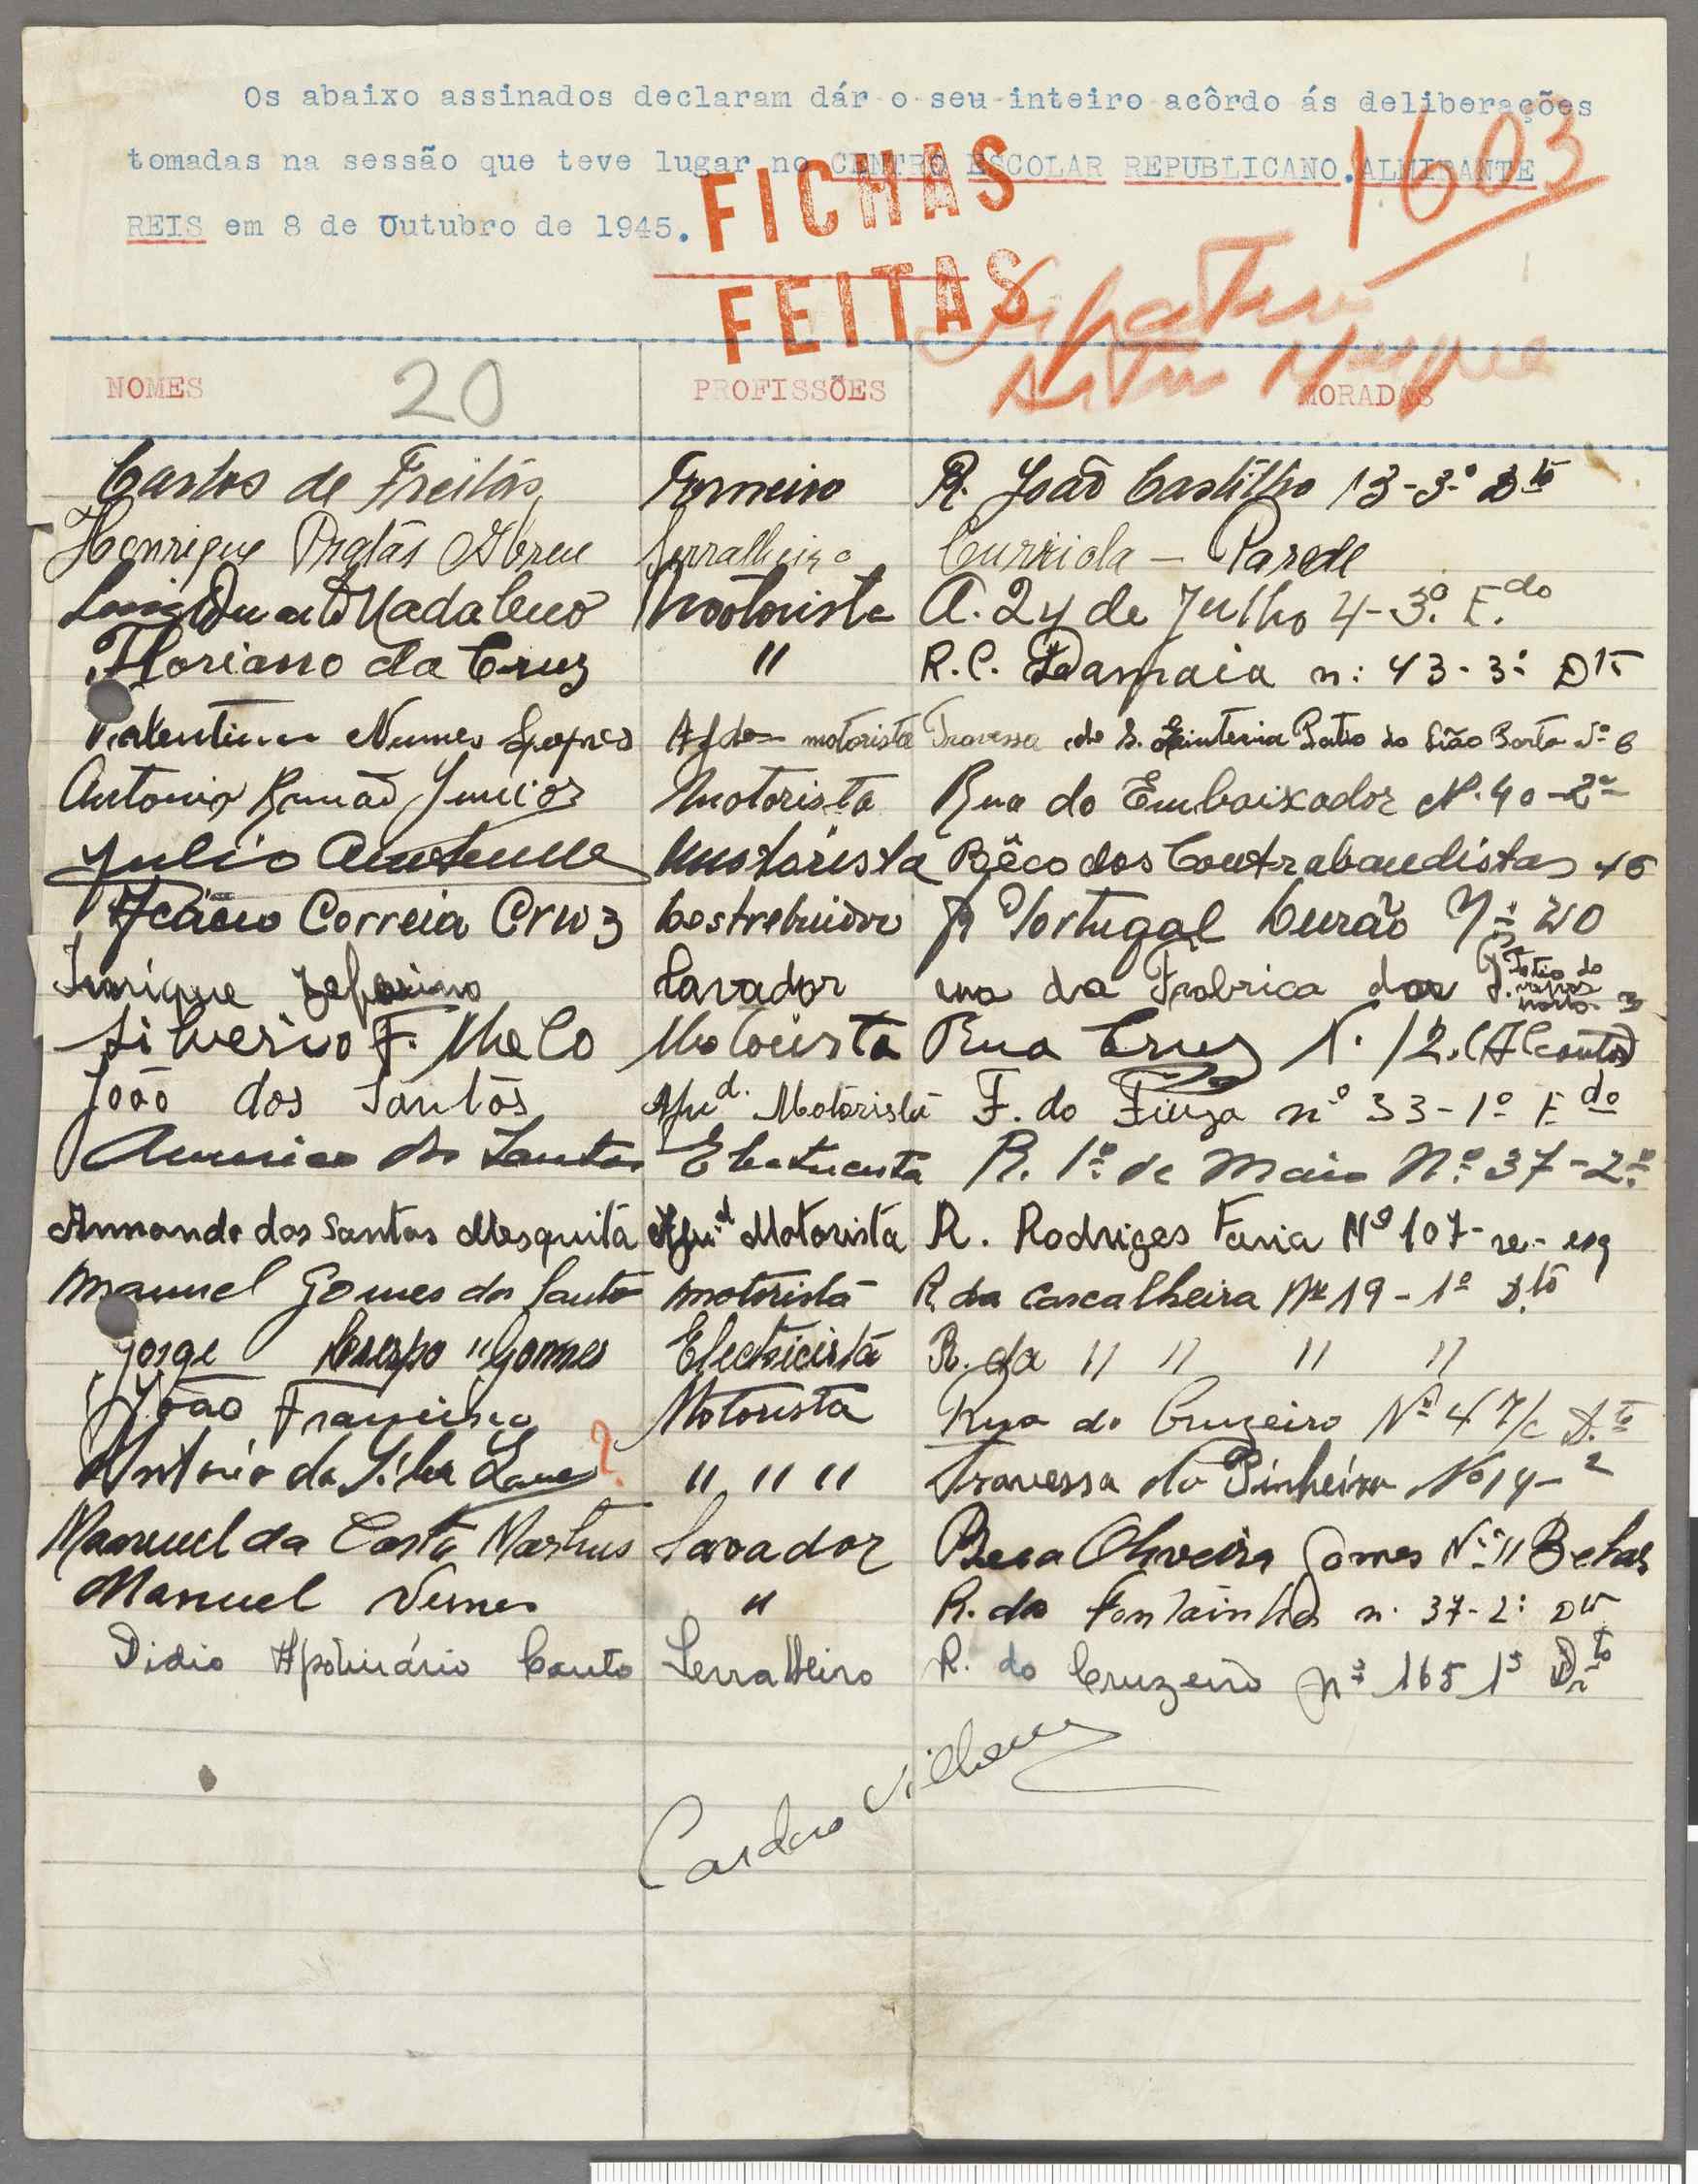 Os abaixo assinados declaram dár o seu inteiro acôrdo ás deliberações
tomadas na sessão que teve lugar no CENTRO ESCOLAR REPUBLICANO. ALMIRANTE
REIS em 8 de Outubro de 1945.
1603
FICHAS
FEITAS
NOMES 20 PROFISSÕES MORADAS
Carlos de Freitas Torneiro R. João Castilho 13-3.º Dto
Henrique Pratas Abreu Serralheiro Curriola - Parede
Luiz Duarte Madaleno Motorista A. 24 de Julho 4-3.º E.do
Floriano da Cruz " R.C. Damaia n: 43-3º Dto
Valentim Nunes Lopes motorista Travessa de S. Quinteria Patio do Porta Nº 6
Antonio Romão Junior Motorista Rua do Embaixador N. 40-2º
Julio Mustorista Bêco dos Contrabandistas 16
Acácio Correia Cruz R Portugal Durão Nº 20
Inrique Zeferino Lavador rua da Frabrica dos Patio do
Silverio F. Melo Motorista Rua Cruz N. 12.
João dos Santos Motorista F. do Fiuza nº 33-1º E.do
Americo dos Santos Electricista R. 1º de Maio Nº 37-2º
Armando dos Santos Mesquita Motorista R. Rodriges Faria Nº 107- esq
Manuel Gomes dos Santos motorista R da Cascalheira Nº 19-1º D.to
Jorge Crespo Gomes Electricista R. da " " " "
João Francisco Motorista Rua do Cruzeiro Nº D.to
António da Silva ? " " " Travessa do Pinheiro Nº 14-2
Manuel da Costa Martins Lavador Oliveira Gomes Nº 11
Manuel Nunes " R. da Fontainhas n. 37-2º Dto
Didio Apolinário Couto Serralheiro R. do Cruzeiro nº 165 1º Dto
Cardoso Vilhena